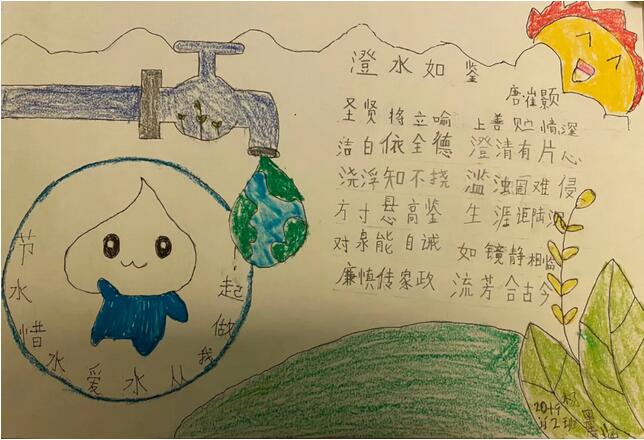 澄水如鉴
唐崔颢
圣贤将立喻 上善贮情深
洁白依全德 澄清有片心
浇浮知不挠 滥浊固难侵
方寸悬高鉴 生涯讵陆沉
对泉能自诫 如镜静相临
廉慎传家政 流芳合古今
节水惜水爱水从我做起
2019
2班